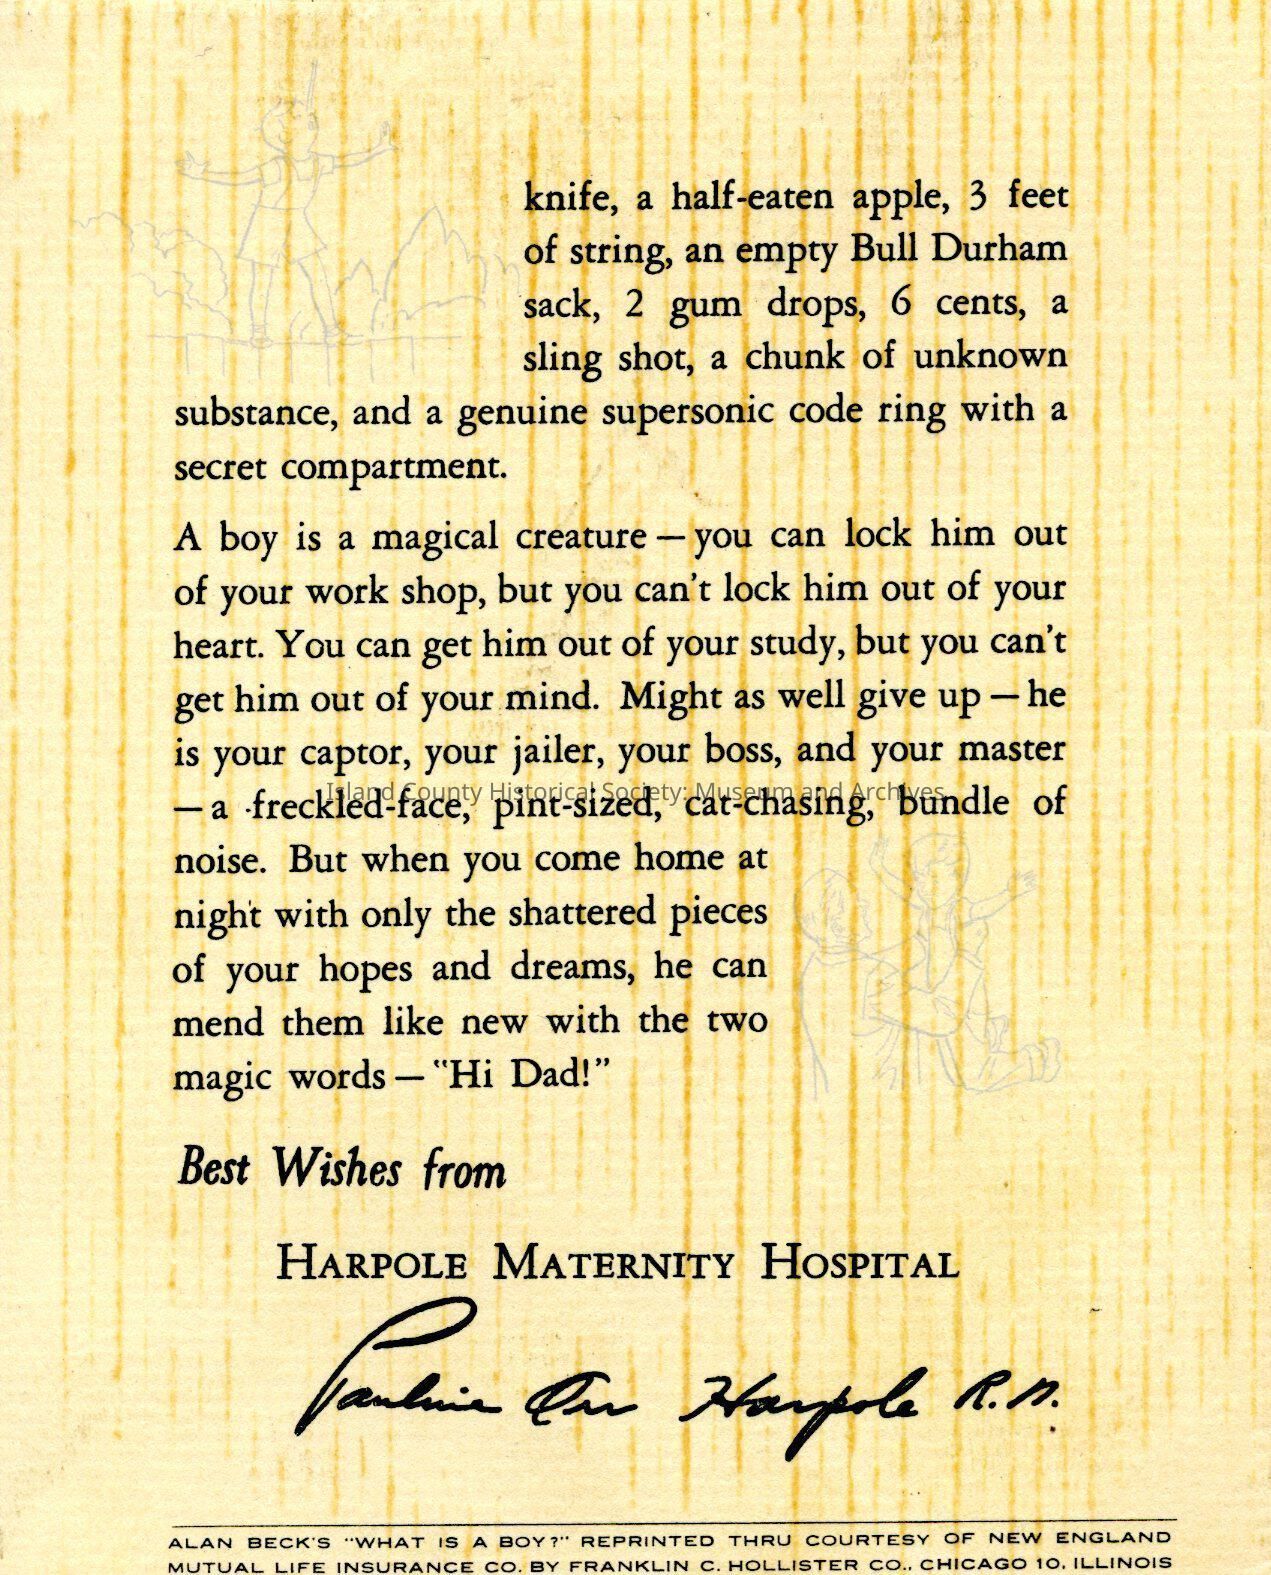 knife, a half-eaten apple, 3 feet
of string, an empty Bull Durham
sack, 2 gum drops, 6 cents, a
sling shot, a chunk of unknown
substance, and a genuine supersonic code ring with a
secret compartment.
A boy is a magical creature — you can lock him out
of your work shop, but you can't lock him out of your
heart. You can get him out of your study, but you can't
get him out of your mind. Might as well give up — he
is your captor, your jailer, your boss, and your master
Island County Historical Society: Museum and Archives
— a freckled-face, pint-sized, cat-chasing, bundle of
noise. But when you come home at
night with only the shattered pieces
of your hopes and dreams, he can
mend them like new with the two
magic words — "Hi Dad!"
Best Wishes from
HARPOLE MATERNITY HOSPITAL
Pauline Orr Harpole R.N.
ALAN BECK'S "WHAT IS A BOY?" REPRINTED THRU COURTESY OF NEW ENGLAND
MUTUAL LIFE INSURANCE CO. BY FRANKLIN C. HOLLISTER CO., CHICAGO 10, ILLINOIS